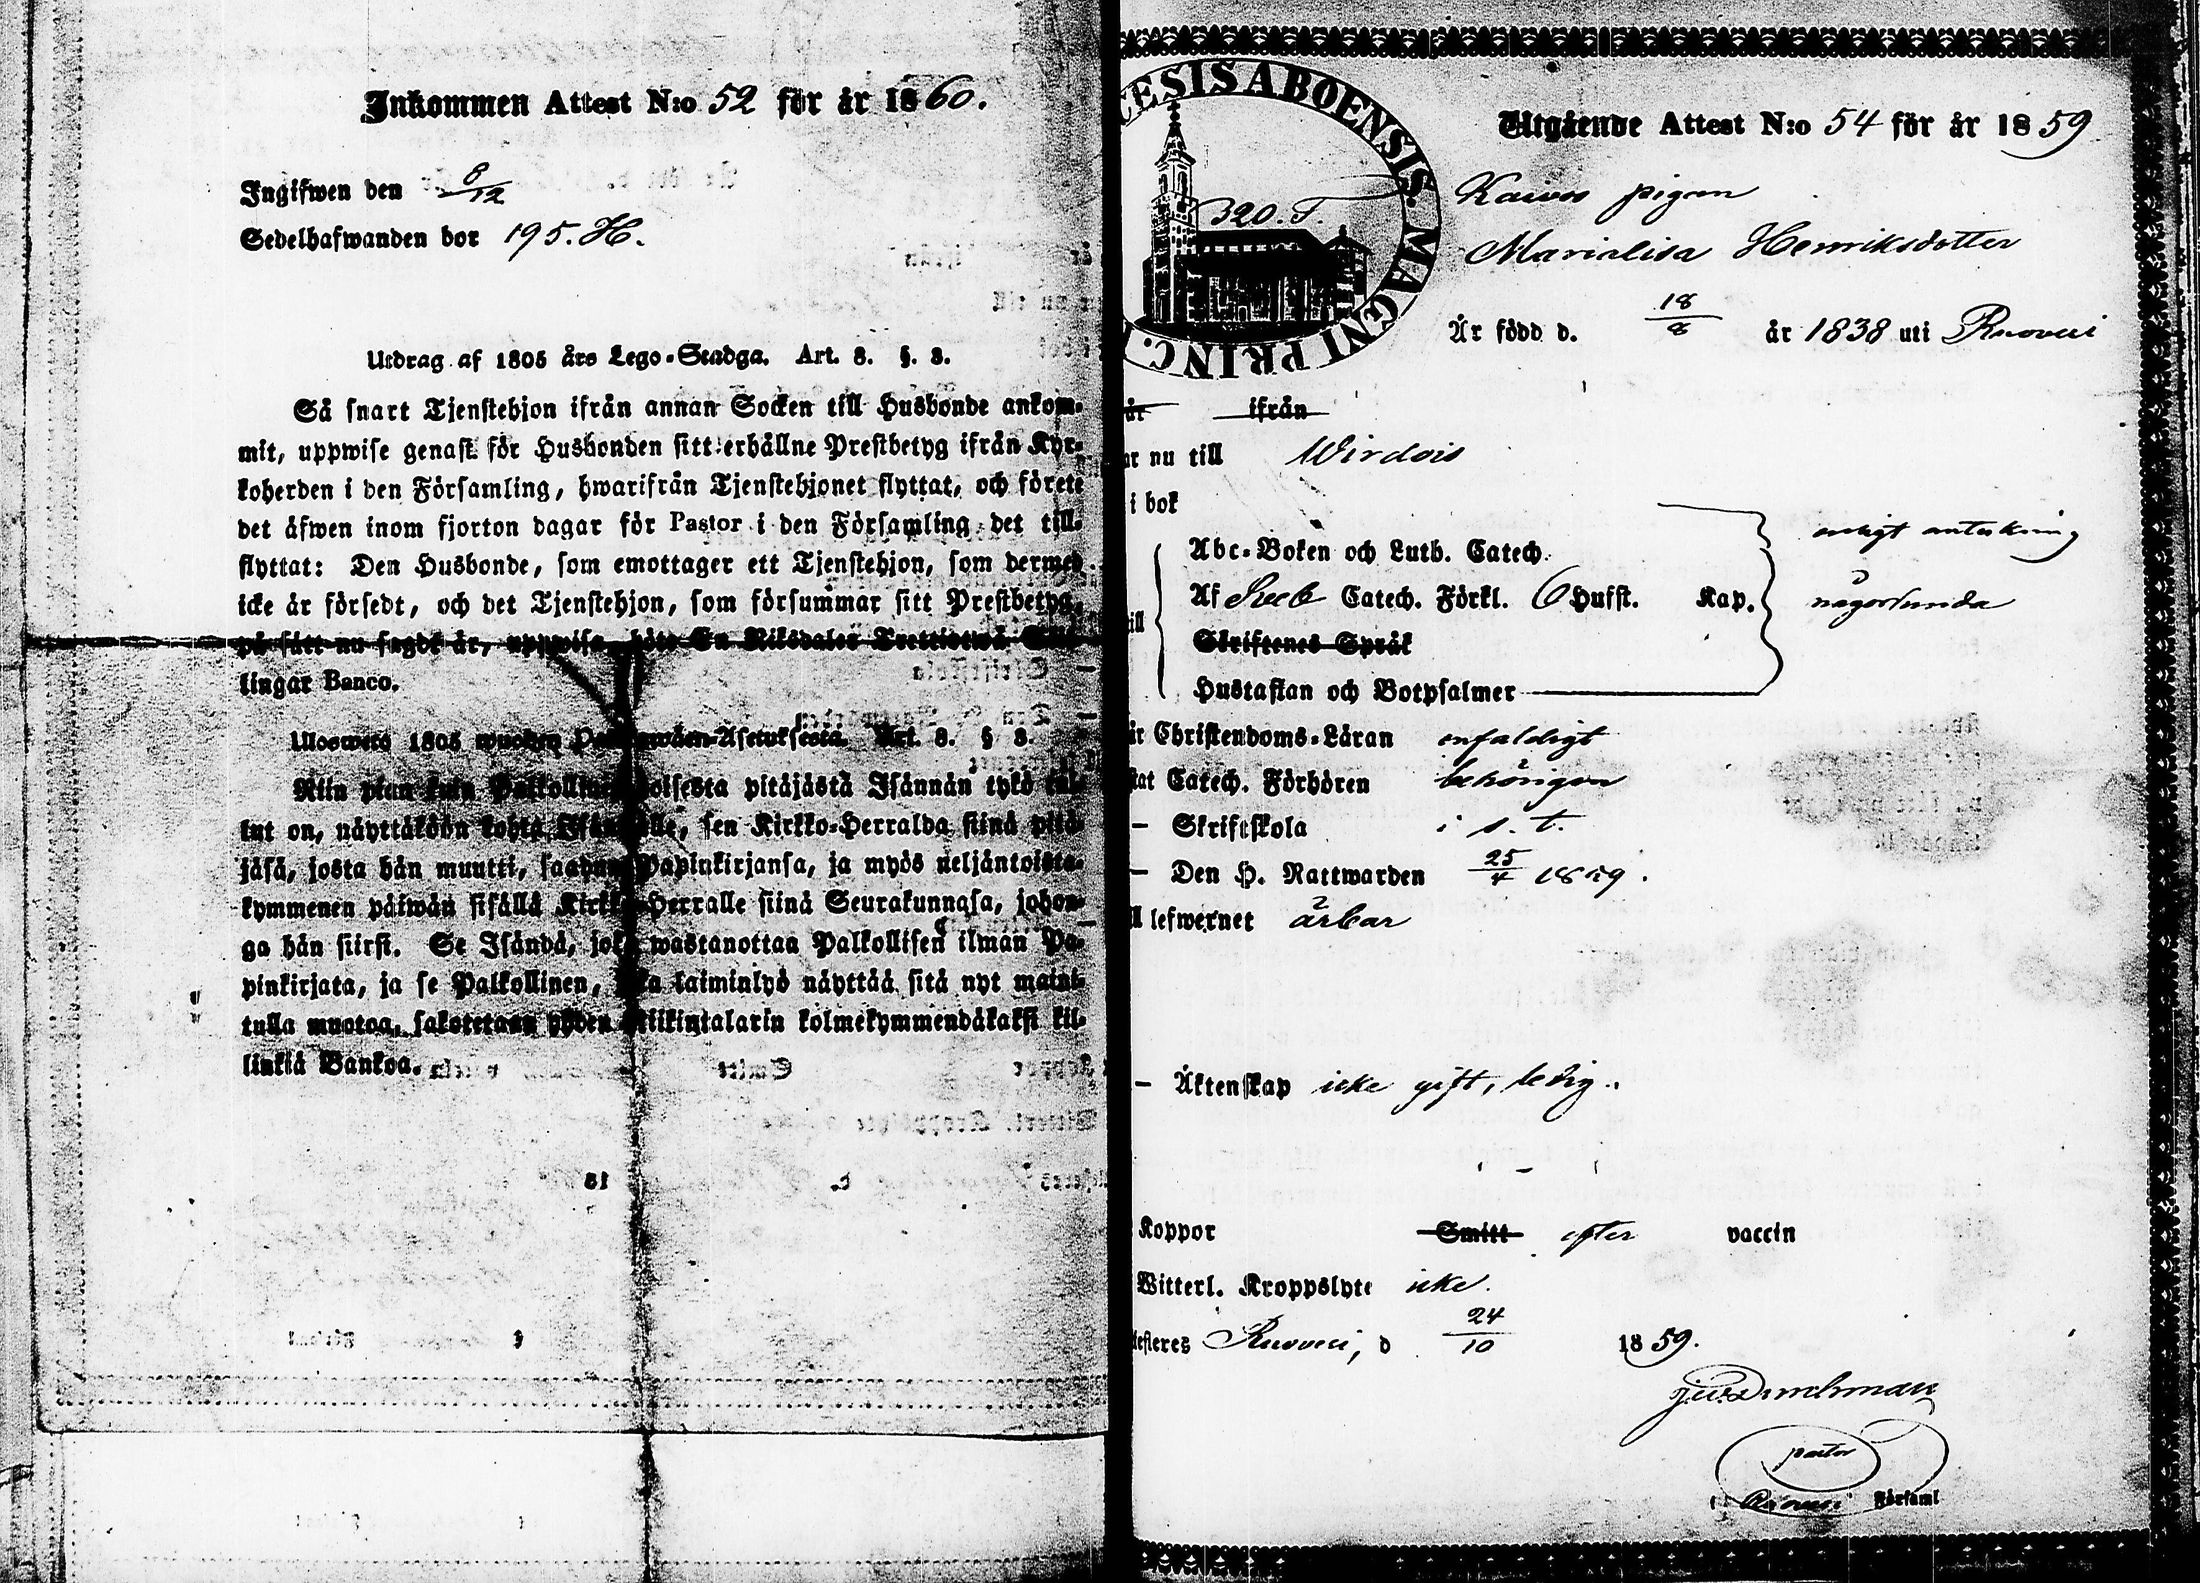 Inkommen Attest N:o 52 för år 1860.
Ingifwen den 8/12
Sedelhafwanden bor 195. H.
Utdrag af 1805 års Lego-Stadga. Art. 8. §. 8.
Så snart Tjenstehjon ifrån annan Socken till Husbonde ankom-
mit, uppwise genast för Husbonden sitt erhållne Prestbetyg ifrån Kyr-
koherden i den Församling, hwarifrån Tjenstehjonet flyttat, och förete
det äfwen inom fjorton dagar för Pastor i den Församling det till-
flyttat: Den Husbonde, som emottager ett Tjenstehjon, som dermed
icke är försedt, och det Tjenstehjon, som försummar sitt Prestbetyg,
på sätt nu sagdt är, uppwisa, böte En Riksdaler Trettiotwå Skil-
lingar Banco.
Uloswetö 1805 wuoden Asetuksesta. Art. 8. § 8.
Niin pian kuin Palkollinen toisesta pitäjästä Isännän tykö tul-
lut on, näyttäköön kohta Isännälle, sen Kirkko-Herralda siinä pitä-
jäsä, josta hän muutti, saadun Papinkirjansa, ja myös neljäntoista-
kymmenen päiwän sisällä Kirkko-Herralle siinä Seurakunnasa, johon-
ga hän siirsi. Se Isändä, joka wastanottaa Palkollisen ilman Pa-
pinkirjata, ja se Palkollinen, joka laiminlyö näyttää sitä nyt maini-
tulla muotoa, sakotetaan yhden Riikintalarin kolmekymmendäkaksi kil-
linkiä Bankoa.
ESIS ABOENSIS. MAGNI PRINC.
320. F.
Utgående Attest N:o 54 för år 1859
pigan
Marialisa Henriksdotter
År född d. 18/8 år 1838 uti Ruovesi
år ifrån
ar nu till Wirdois
i bok
Abc-Boken och Luth. Catech.
enligt antekning
Af Sveb Catech. Förkl. 6 Hufst. Kap.
någorlunda
till
Skriftenes Språk
Hustaflan och Botpsalmer
är Christendoms-Läran enfaldigt
stat Catech. Förhören behörigen
— Skriftskola i s. t.
— Den H. Nattwarden 25/4 1859.
ll lefwernet ärbar
— Äktenskap icke gift, ledig.
Koppor Smitt efter vaccin
Witterl. Kroppslyte icke.
testeres Ruovesi, d 24/10 1859.
pastor
i Ruovesi Församl